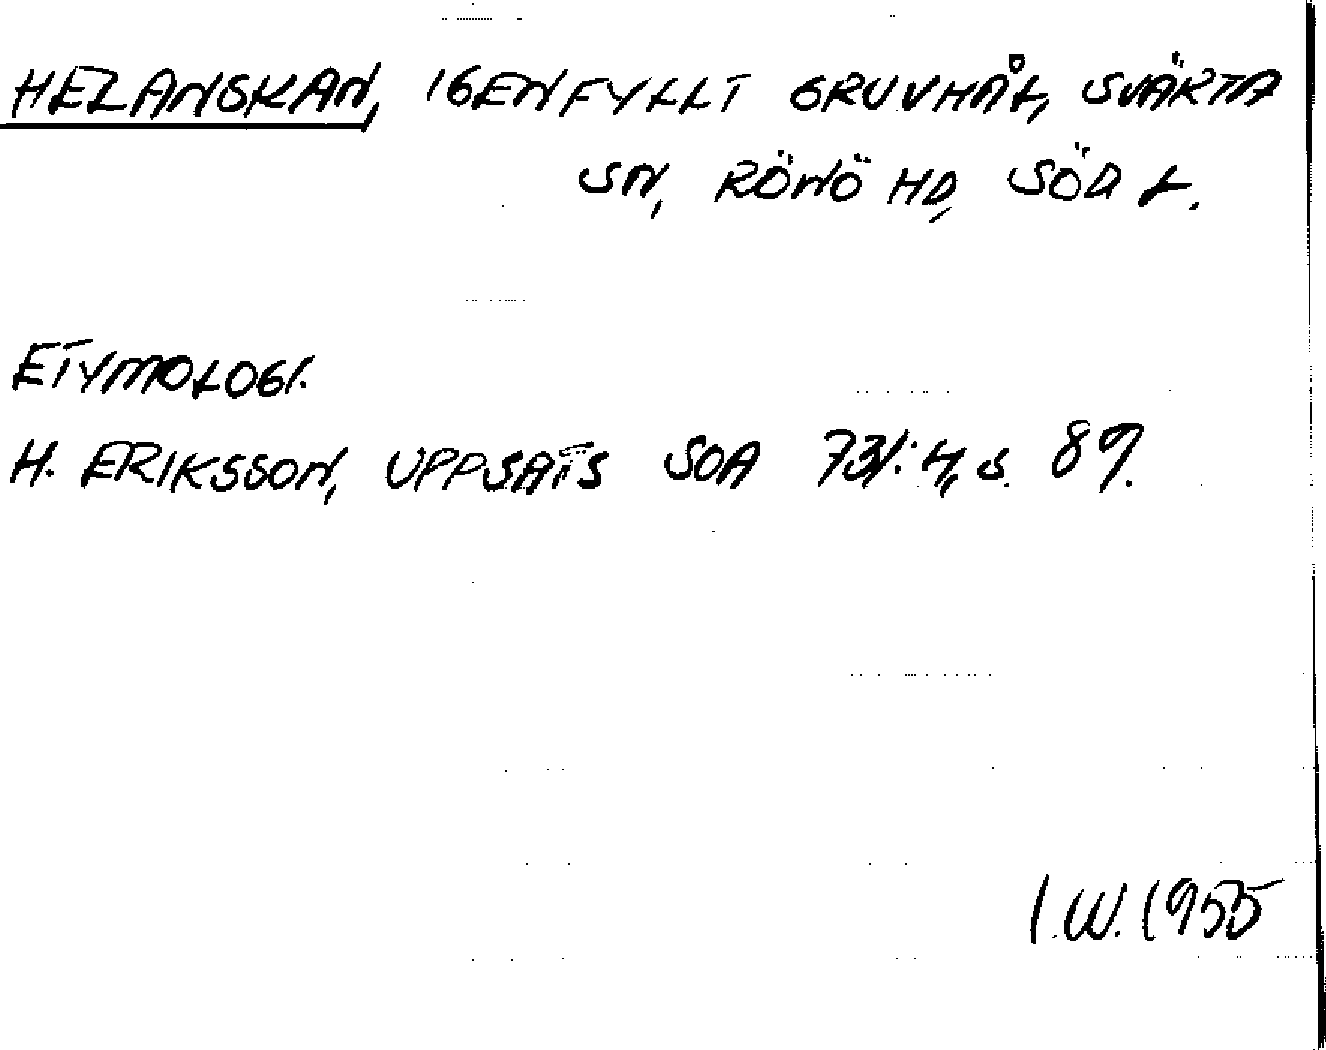 HELANSKAN, IGENFYLLT GRUVHÅL, SVÄRTA
SN, RÖNÖ HD, SÖD L.
ETYMOLOGI.
H. ERIKSSON, UPPSATS SOA 731:4, s. 89.
I.W. 1955